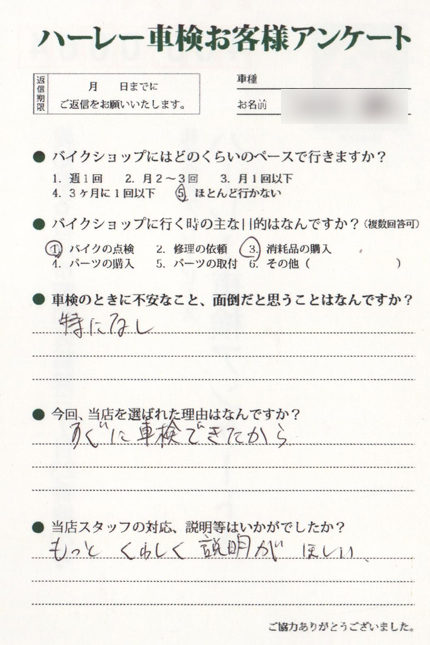 ハーレー車検お客様アンケート
返信期限
月　日までに
ご返信をお願いいたします。
車種
お名前
● バイクショップにはどのくらいのペースで行きますか？
1. 週1回　2. 月2～3回　3. 月1回以下
4. 3ヶ月に1回以下　5. ほとんど行かない
● バイクショップに行く時の主な目的はなんですか？(複数回答可)
1. バイクの点検　2. 修理の依頼　3. 消耗品の購入
4. パーツの購入　5. パーツの取付　6. その他（　　　　）
● 車検のときに不安なこと、面倒だと思うことはなんですか？
特になし
● 今回、当店を選ばれた理由はなんですか？
すぐに車検できたから
● 当店スタッフの対応、説明等はいかがでしたか？
もっと くわしく 説明が ほしい、
ご協力ありがとうございました。